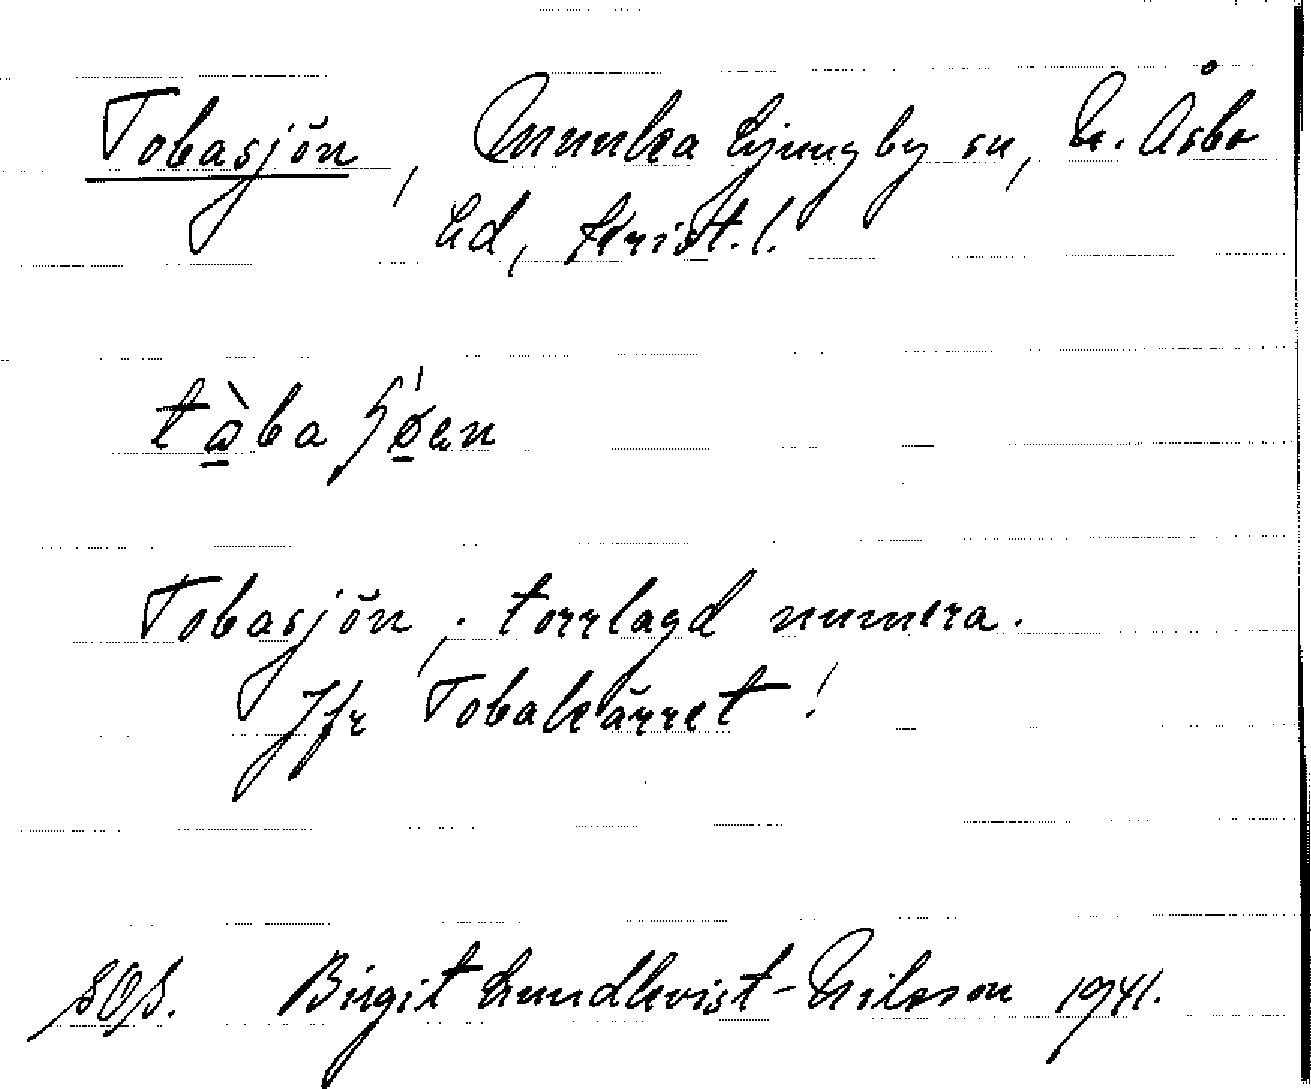 Tobasjön, Munka Ljungby sn, N. Åsbo
hd, Krist. l.
tàba sjøen
Tobasjön; torrlagd numera.
Jfr Tobakärret!
SOS. Birgit Lundkvist-Nilsson 1941.